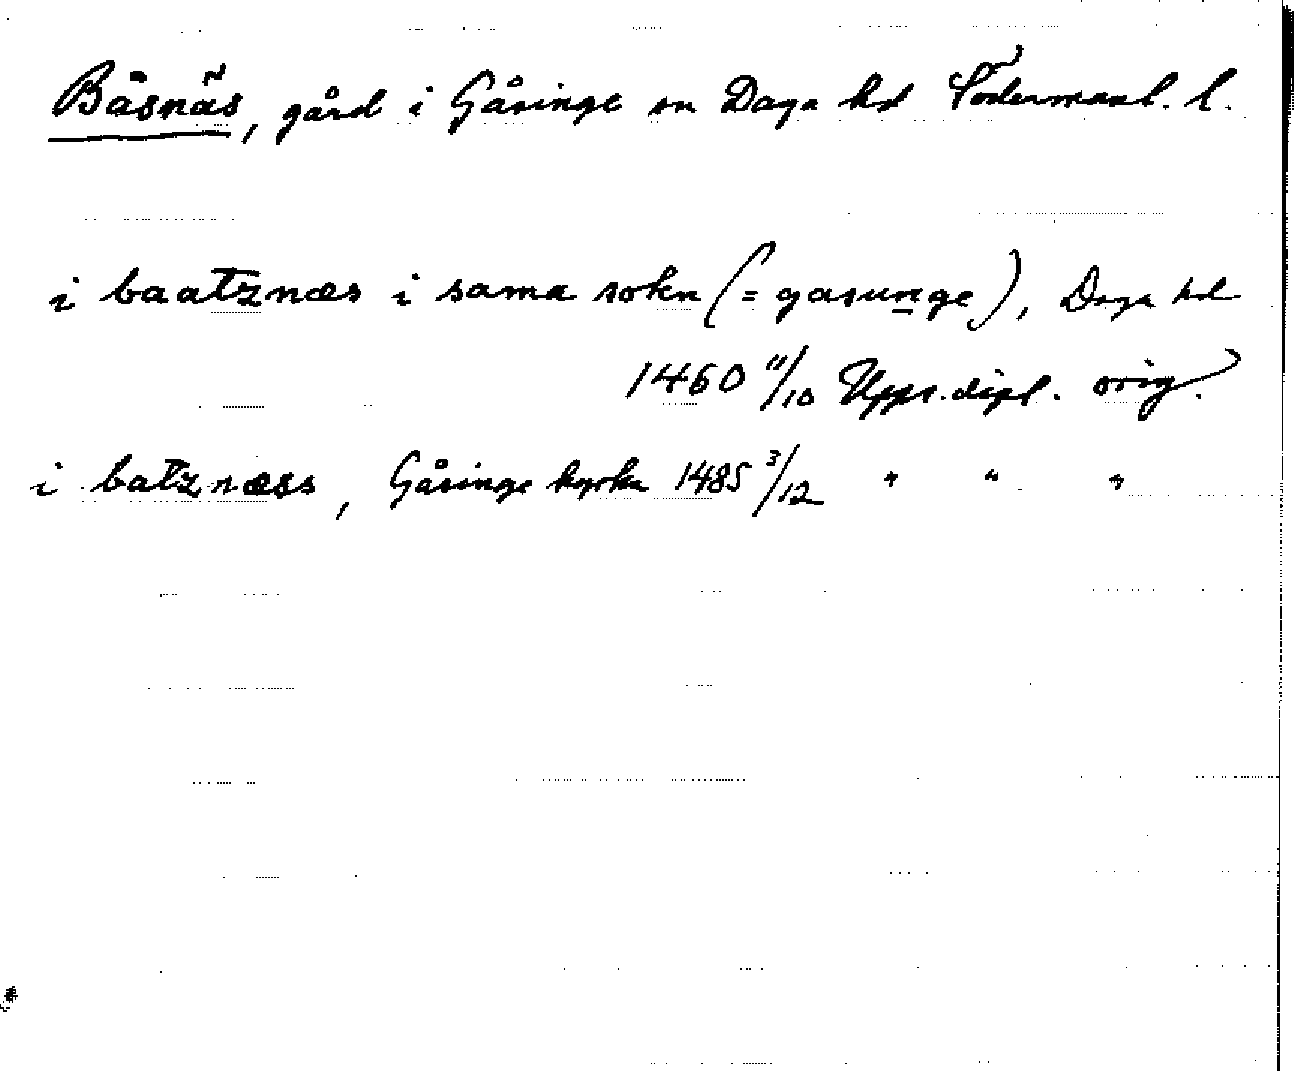 Båsnäs, gård i Gåsinge sn Daga hd Södermanl. l.
i baatznæs i sama sokn (= gasunge), Daga hd
1460 11/10 Upps. dipl. orig.
i batznæss, Gåsinge kyrka 1485 3/12 " " "